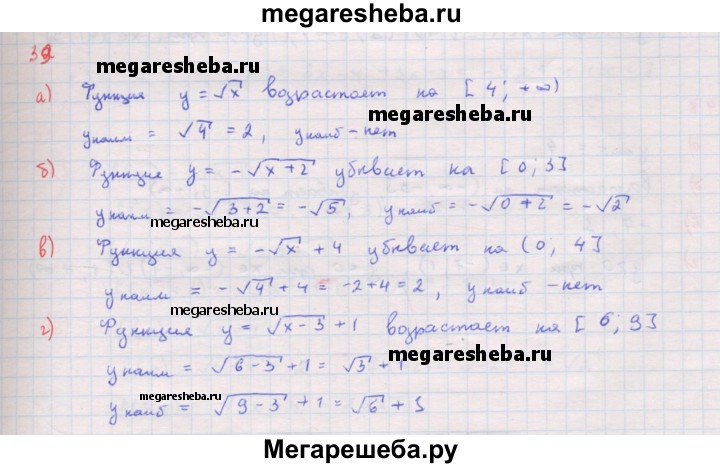 megaresheba.ru
39
megaresheba.ru
а) Функция y = √x возрастает на [4; +∞)
megaresheba.ru
y наим = √4 = 2, y наиб - нет
б) Функция y = -√(x+2) убывает на [0; 3]
y наим = -√(3+2) = -√5, y наиб = -√(0+2) = -√2
megaresheba.ru
в) Функция y = -√x + 4 убывает на (0, 4]
y наим = -√4 + 4 = -2+4 = 2, y наиб - нет
megaresheba.ru
г) Функция y = √(x-3) + 1 возрастает на [6; 9]
megaresheba.ru
y наим = √(6-3) + 1 = √3 + 1
megaresheba.ru
y наиб = √(9-3) + 1 = √6 + 1
Мегарешеба.ру